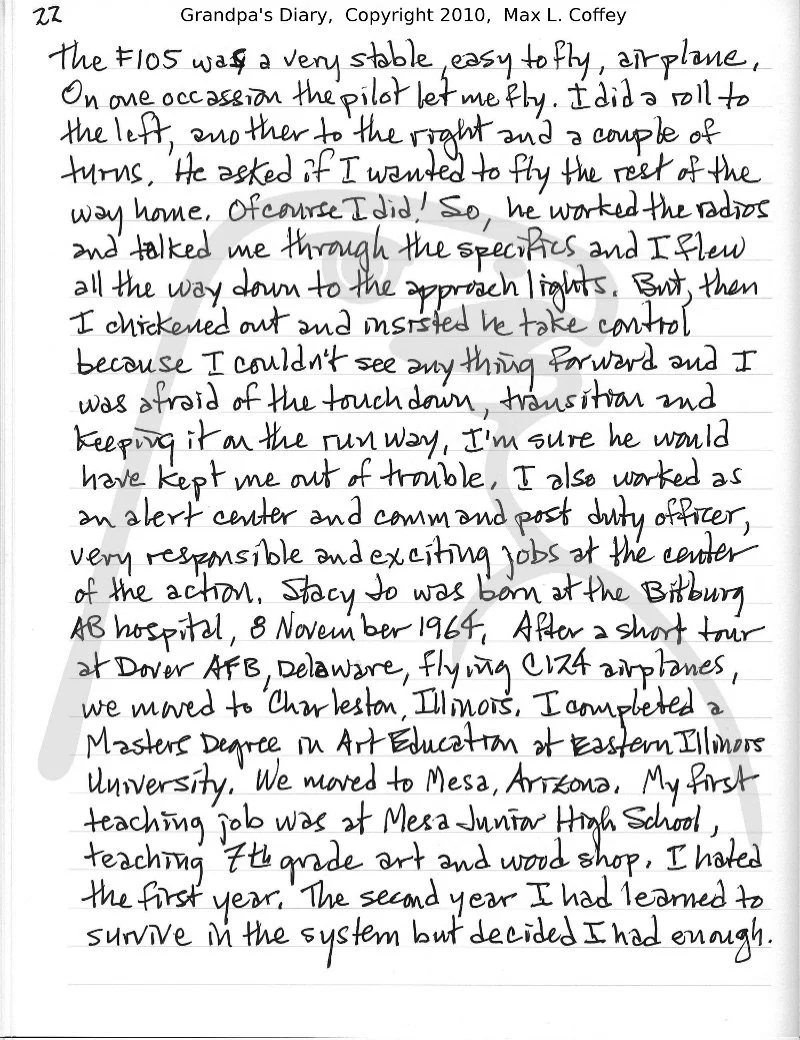 22
Grandpa's Diary, Copyright 2010, Max L. Coffey
The F105 was a very stable, easy to fly, airplane.
On one occassion the pilot let me fly. I did a roll to
the left, another to the right and a couple of
turns. He asked if I wanted to fly the rest of the
way home. Of course I did! So, he worked the radios
and talked me through the specifics and I flew
all the way down to the approach lights. But, then
I chickened out and insisted he take control
because I couldn't see anything forward and I
was afraid of the touchdown, transition and
keeping it on the runway. I'm sure he would
have kept me out of trouble. I also worked as
an alert center and command post duty officer,
very responsible and exciting jobs at the center
of the action. Stacy Jo was born at the Bitburg
AB hospital, 8 November 1964. After a short tour
at Dover AFB, Delaware, flying C124 airplanes,
we moved to Charleston, Illinois. I completed a
Masters Degree in Art Education at Eastern Illinois
University. We moved to Mesa, Arizona. My first
teaching job was at Mesa Junior High School,
teaching 7th grade art and wood shop. I hated
the first year. The second year I had learned to
survive in the system but decided I had enough.